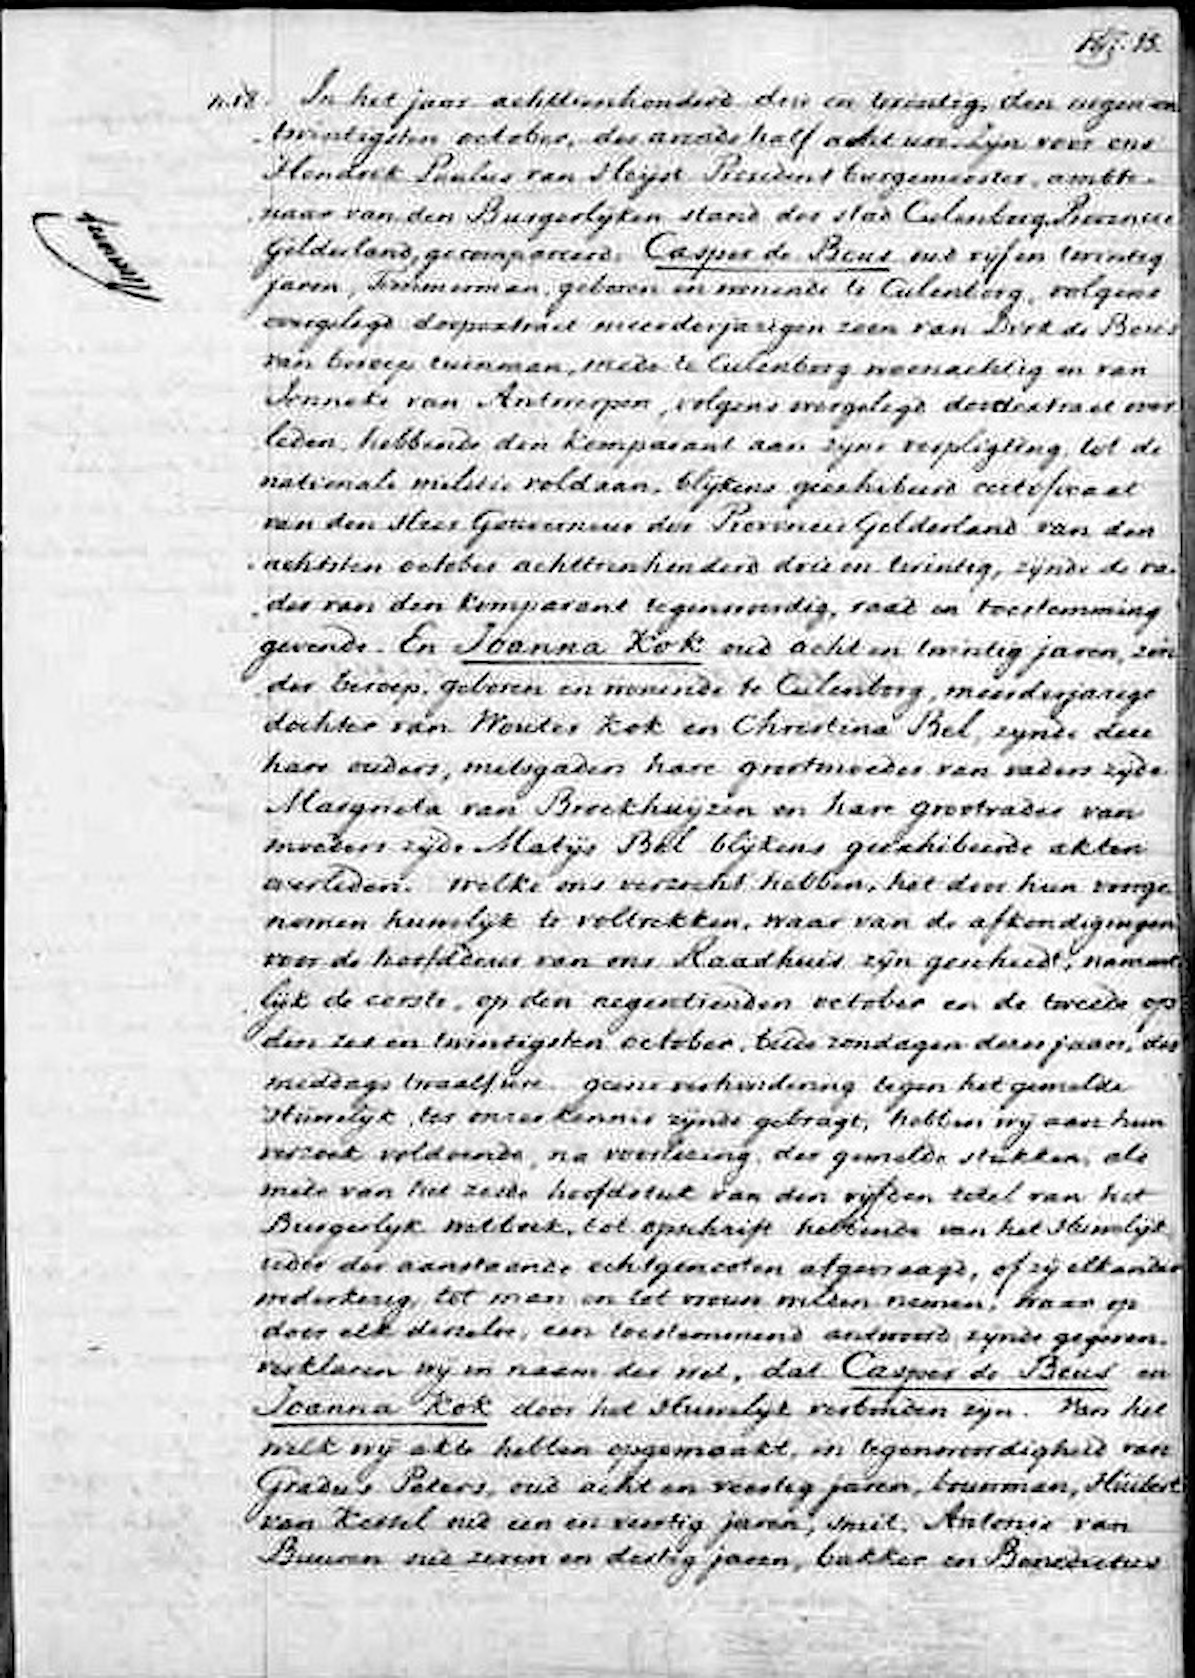 n. 18. In het jaar achttienhonderd drie en twintig, den negen en
twintigsten october, des avonds half acht ure. Zyn voor ons
Hendrik Paulus van Heijst President burgemeester, ambte-
naar van den Burgerlyken stand der stad Culenborg Provincie
Gelderland, gecompareerd, Casper de Beus oud vyf en twintig
jaren, Timmerman, geboren en wonende te Culenborg, volgens
overgelegd doopextract meerderjarigen zoon van Dirk de Beus
van beroep tuinman, mede te Culenborg woonachtig en van
Jenneke van Antwerpen, volgens overgelegd doodextract over
leden, hebbende den komparant aan zyne verpligting tot de
nationale militie voldaan, blykens geexhibeerd certificaat
van den Heer Gouverneur der Provincie Gelderland van den
achtsten october achttienhonderd drie en twintig, zynde de va-
der van den komparant tegenwoordig, raad en toestemming
gevende. En Joanna Kok oud acht en twintig jaren, zon
der beroep, geboren en wonende te Culenborg, meerderjarige
dochter van Wouter Kok en Christina Bel, zynde deze
hare ouders, mitsgaders hare grootmoeder van vaders zyde
Margrieta van Broekhuyzen en hare grootvader van
moeders zyde Matijs Bel blykens geexhibeerde akten
overleden. Welke ons verzocht hebben, het door hun voorge
nomen huwelyk te voltrekken, waar van de afkondigingen
voor de hoofddeur van ons Raadhuis zyn geschiedt, nament
lyk de eerste, op den negentienden october en de tweede op
den zes en twintigsten october, beide zondagen dezes jaars, des
middags twaalf ure. geene verhindering tegen het gemelde
Huwelyk, ter onzer kennis zynde gebragt, hebben wy aan hun
verzoek voldoende, na voorlezing der gemelde stukken, als
mede van het zesde hoofdstuk van den vyfden titel van het
Burgerlyk wetboek, tot opschrift hebbende van het Huwelyk
ieder der aanstaande echtgenooten afgevraagd, of zy elkander
wederkerig, tot man en tot vrouw willen nemen, waar op
door elk derzelve, een toestemmend antwoord zynde gegeven.
verklaren wy in naam der wet, dat Casper de Beus en
Joanna Kok door het Huwelyk verbonden zyn. Van het
welk wy akte hebben opgemaakt, in tegenwoordigheid van
Gradus Peters, oud acht en veertig jaren, bouwman, Huibert
van Kessel oud een en veertig jaren, smit, Antonie van
Buuren oud zeven en dertig jaren, bakker en Benedictus